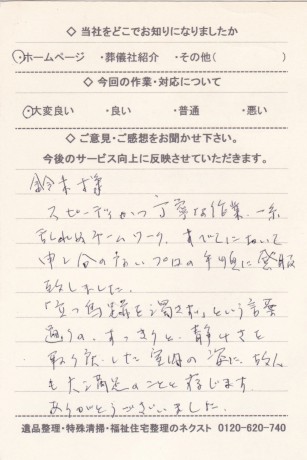 ◇ 当社をどこでお知りになりましたか ◇
・ホームページ ・葬儀社紹介 ・その他( )
◇ 今回の作業・対応について ◇
・大変良い ・良い ・普通 ・悪い
◇ ご意見・ご感想をお聞かせ下さい。 ◇
今後のサービス向上に反映させていただきます。
鈴木様
スピーディかつ丁寧な作業、一糸
乱れぬチームワーク、すべてにおいて
申し分のないプロの手順に感服
致しました。
「立つ鳥跡を濁さず」という言葉
通りの、すっきりと、静けさを
取り戻した室内の姿に、故人
も大満足のことと存じます。
ありがとうございました。
遺品整理・特殊清掃・福祉住宅整理のネクスト 0120-620-740